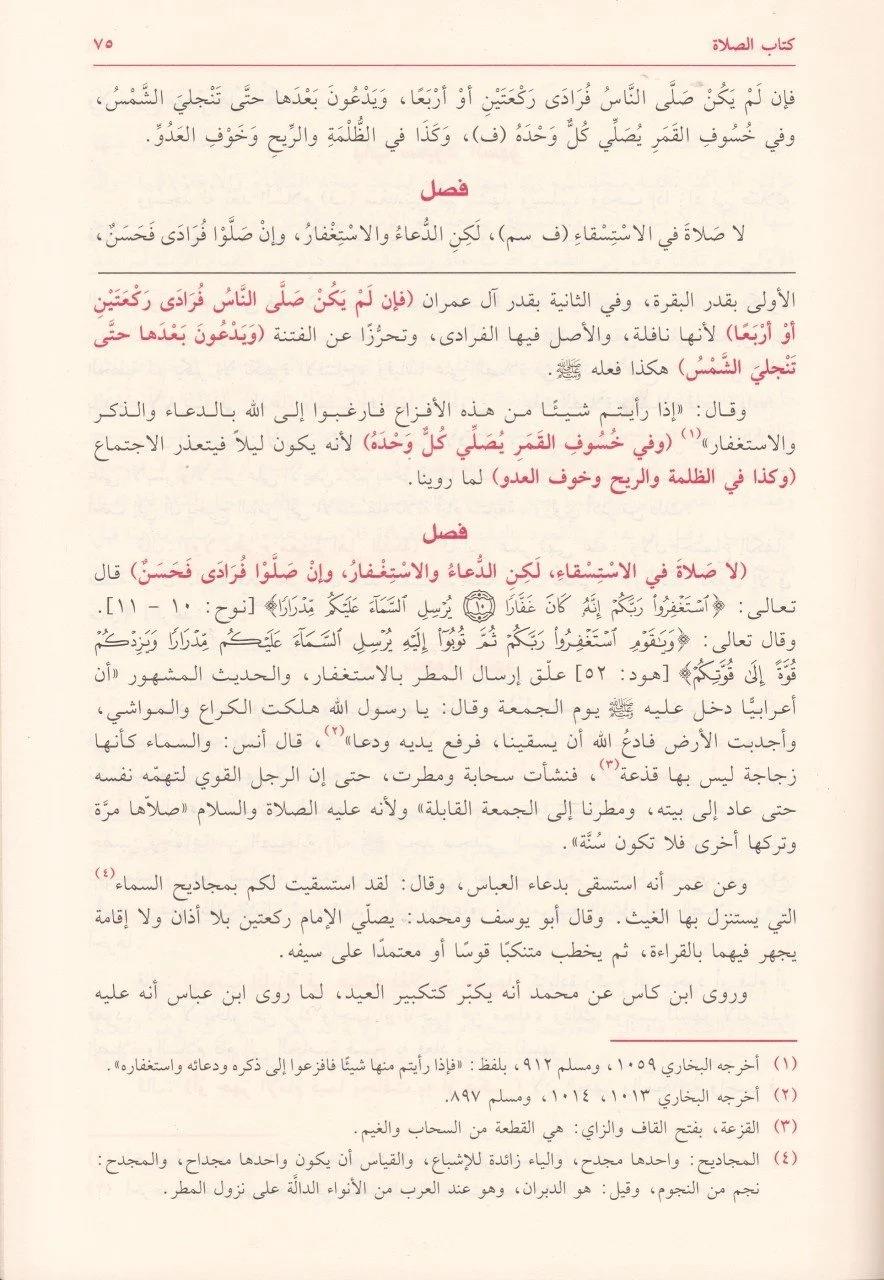 كتاب الصلاة ٧٥
فإن لَمْ يَكُنْ صَلَّى النَّاسُ فُرَادَى رَكْعَتَيْنِ أوْ أرْبَعًا، وَيَدْعُونَ بَعْدَها حتَّى تَنْجليَ الشَّمْسُ،
وفي خُسُوفِ القَمَرِ يُصَلِّي كُلٌّ وَحْدَهُ (ف)، وَكَذَا في الظُّلْمَةِ والرِّيحِ وَخَوْفِ العَدُوِّ.
فصل
لا صَلاةَ في الاسْتِسْقاءِ (ف سم)، لَكِنِ الدُّعاءُ والاسْتِغْفارُ، وإنْ صَلَّوْا فُرَادَى فَحَسَنٌ،
الأولى بقدر البقرة، وفي الثانية بقدر آل عمران (فإن لَمْ يَكُنْ صَلَّى النَّاسُ فُرَادَى رَكْعَتَيْنِ
أوْ أرْبَعًا) لأنها نافلة، والأصل فيها الفرادى، وتحرُّزًا عن الفتنة (وَيَدْعُونَ بَعْدَها حتَّى
تَنْجليَ الشَّمْسُ) هكذا فعله ﷺ.
وقال: «إذا رأيتم شيئًا من هذه الأفزاع فارغبوا إلى الله بالدعاء والذكر
والاستغفار»(١) (وفي خُسُوفِ القَمَرِ يُصَلِّي كُلٌّ وَحْدَهُ) لأنه يكون ليلاً فيتعذر الاجتماع
(وكذا في الظلمة والريح وخوف العدو) لما روينا.
فصل
(لا صَلاةَ في الاسْتِسْقاءِ، لَكِنِ الدُّعاءُ والاسْتِغْفارُ، وإنْ صَلَّوْا فُرَادَى فَحَسَنٌ) قال
تعالى: ﴿ٱسْتَغْفِرُوا۟ رَبَّكُمْ إِنَّهُۥ كَانَ غَفَّارًا ۝١٠ يُرْسِلِ ٱلسَّمَآءَ عَلَيْكُم مِّدْرَارًا﴾ [نوح: ١٠ - ١١].
وقال تعالى: ﴿وَيَٰقَوْمِ ٱسْتَغْفِرُوا۟ رَبَّكُمْ ثُمَّ تُوبُوٓا۟ إِلَيْهِ يُرْسِلِ ٱلسَّمَآءَ عَلَيْكُم مِّدْرَارًا وَيَزِدْكُمْ
قُوَّةً إِلَىٰ قُوَّتِكُمْ﴾ [هود: ٥٢] علّق إرسال المطر بالاستغفار، والحديث المشهور «أن
أعرابيًّا دخل عليه ﷺ يوم الجمعة وقال: يا رسول الله هلكت الكراع والمواشي،
وأجدبت الأرض فادعُ الله أن يسقينا، فرفع يديه ودعا»(٢)، قال أنس: والسماء كأنها
زجاجة ليس بها قذعة(٣)، فنشأت سحابة ومطرت، حتى إن الرجل القوي لتهمّه نفسه
حتى عاد إلى بيته، ومطرنا إلى الجمعة القابلة» ولأنه عليه الصلاة والسلام «صلاّها مرَّة
وتركها أخرى فلا تكون سُنَّة».
وعن عمر أنه استسقى بدعاء العباس، وقال: لقد استسقيت لكم بمجاديح السماء(٤)
التي يستنزل بها الغيث. وقال أبو يوسف ومحمد: يصلّي الإمام ركعتين بلا أذان ولا إقامة
يجهر فيهما بالقراءة، ثم يخطب متنكبًا قوسًا أو معتمدًا على سيفه.
وروى ابن كاس عن محمد أنه يكبّر كتكبير العيد، لما روى ابن عباس أنه عليه
(١) أخرجه البخاري ١٠٥٩، ومسلم ٩١٢، بلفظ: «فإذا رأيتم منها شيئًا فافزعوا إلى ذكره ودعائه واستغفاره».
(٢) أخرجه البخاري ١٠١٣، ١٠١٤، ومسلم ٨٩٧.
(٣) القزعة، بفتح القاف والزاي: هي القطعة من السحاب والغيم.
(٤) المجاديح: واحدها مجدح، والياء زائدة للإشباع، والقياس أن يكون واحدها مجداح، والمجدح:
نجم من النجوم، وقيل: هو الدبران، وهو عند العرب من الأنواء الدالَّة على نزول المطر.